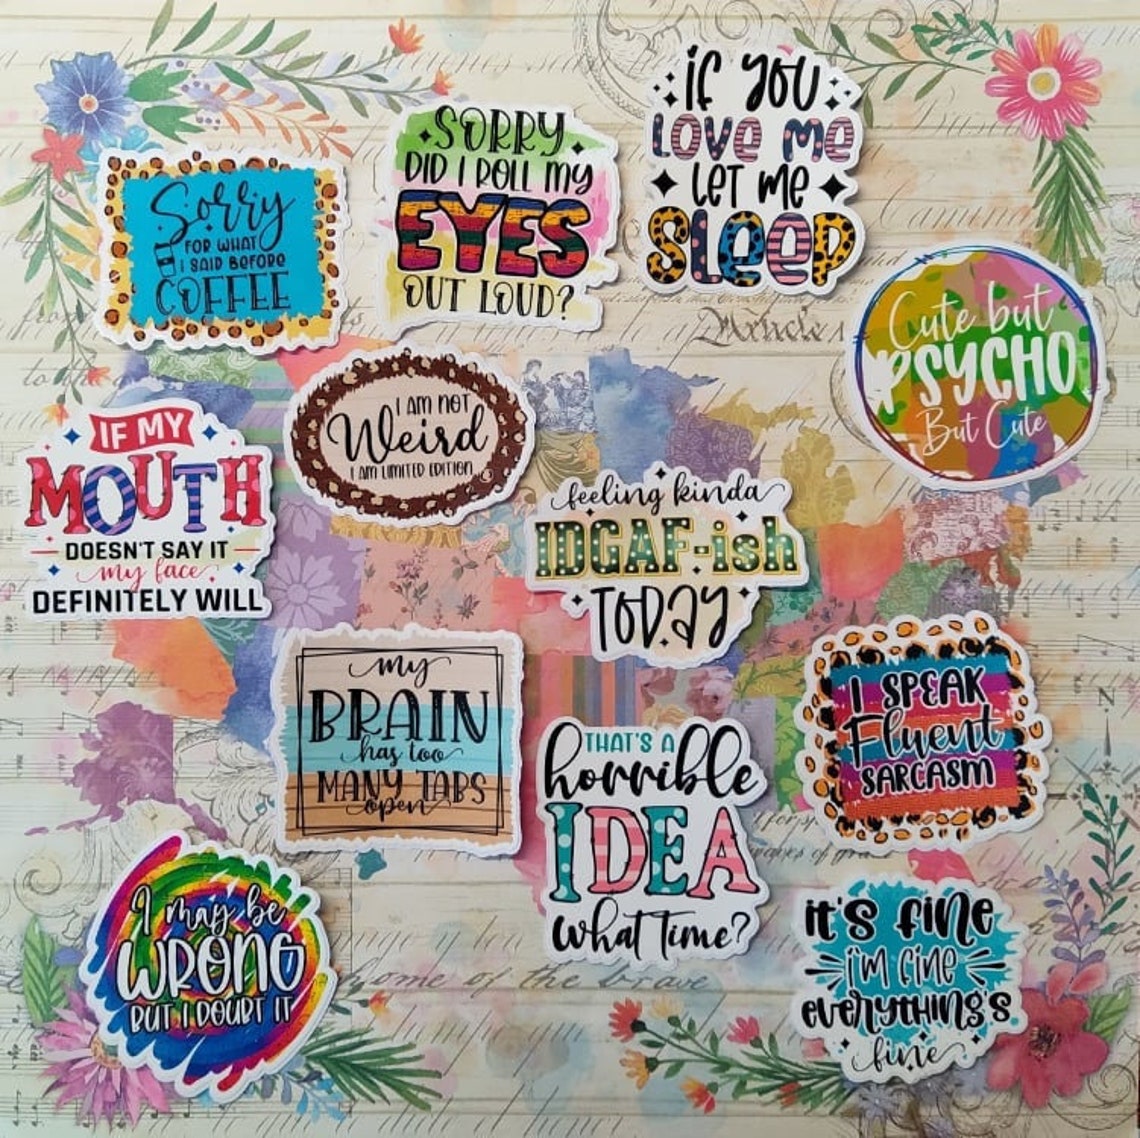 Sorry
FOR WHAT
I SAID BEFORE
COFFEE
SORRY
DID I ROLL MY
EYES
OUT LOUD?
IF YOU
LOVE ME
LET ME
SLEEP
Cute but
PSYCHO
But Cute
I AM NOT
Weird
I AM LIMITED EDITION
IF MY
MOUTH
DOESN'T SAY IT
my face
DEFINITELY WILL
feeling kinda
IDGAF-ish
TODAY
my
BRAIN
has too
MANY TABS
open
THAT'S A
horrible
IDEA
what Time?
I SPEAK
Fluent
SARCASM
I may be
WRONG
BUT I DOUBT IT
it's fine
i'm fine
everything's
fine
Article
home of the brave